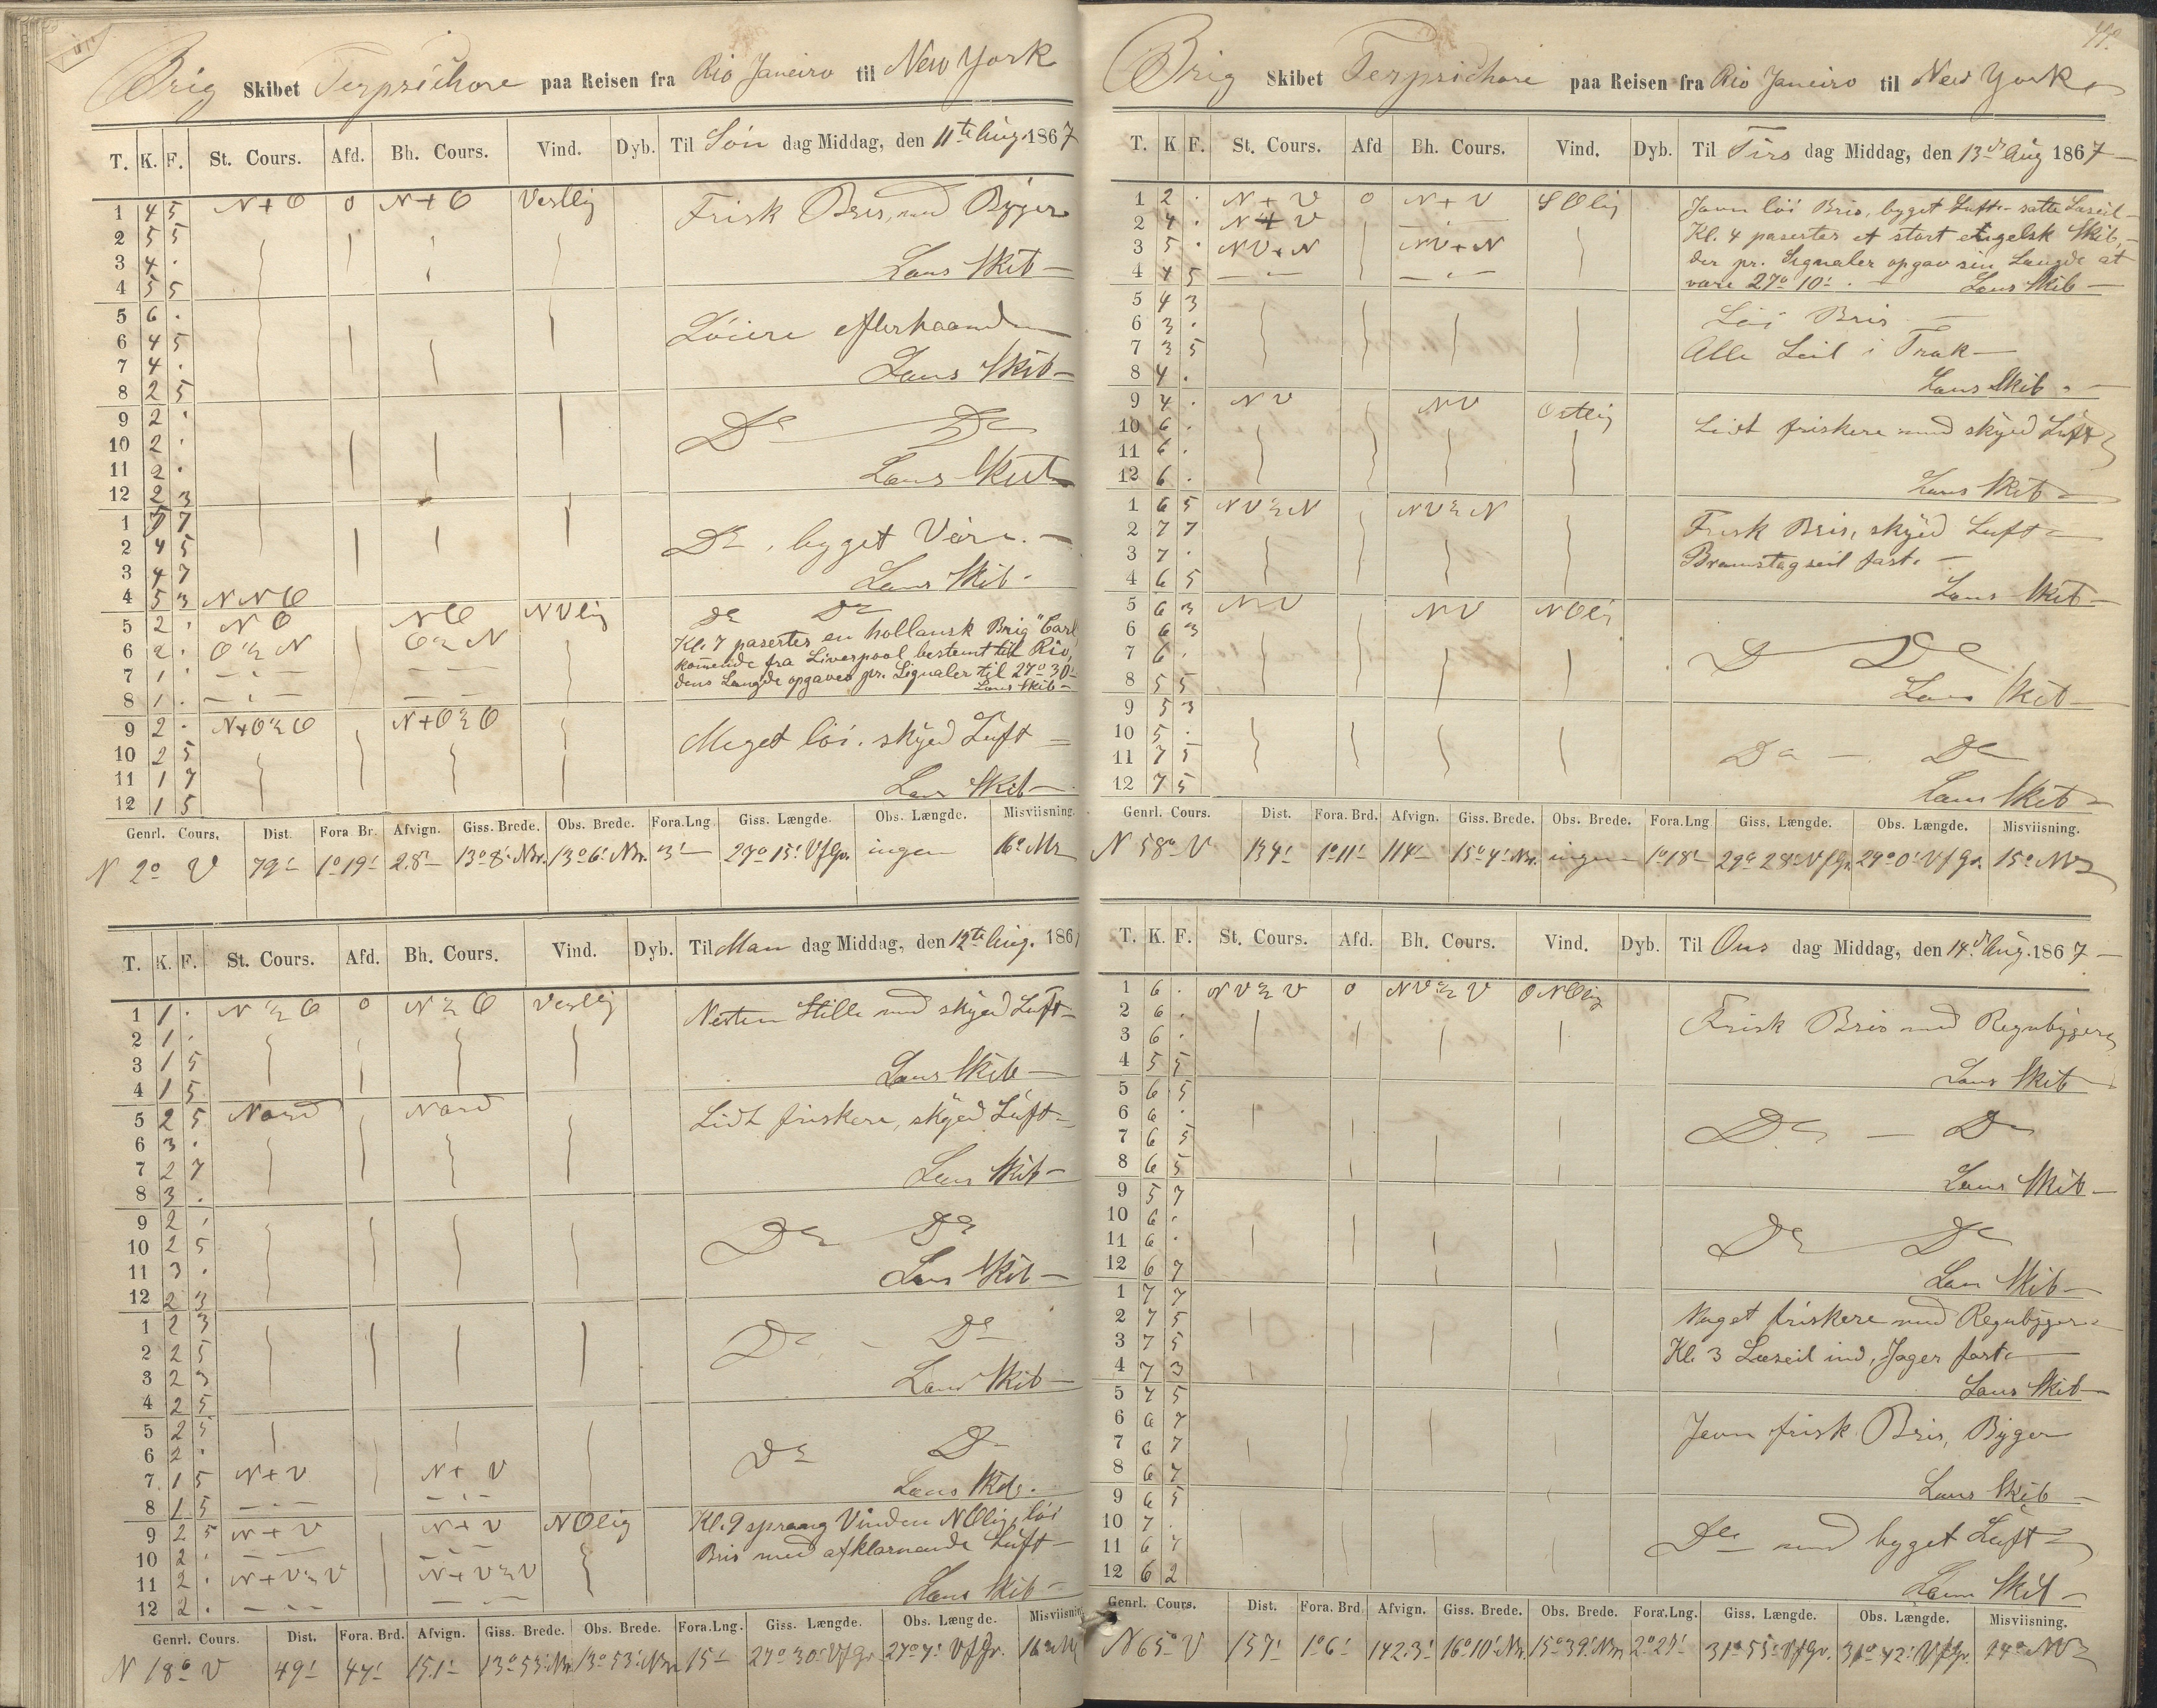 Brig Skibet Terpsichore paa Reisen fra Rio Janeiro til New York
T. K. F. St. Cours. Afd. Bh. Cours. Vind. Dyb. Til Søn dag Middag, den 11te Aug. 1867
1 4 5 N+O 0 N+O Vestlig Frisk Bris, med Byger
2 5 5
3 4 . Læns Skib
4 5 5
5 6 .
6 4 5 Løiere efterhaanden
7 4 . Læns Skib
8 2 5
9 2 . Do Do
10 2 .
11 2 . Læns Skib
12 2 3
1 7
2 4 5 Do, byget Veir.
3 4 7 Læns Skib
4 5 3 NNO
5 2 . NO NO NVlig Do Do
6 2 . O½N O½N Kl. 7 paserter en hollansk Brig "Carl
7 1 . komende fra Liverpool, bestemt til Rio,
8 1 . dens Længde opgaves pr. Signaler til 27° 30' Læns Skib
9 2 . N+O½O N+O½O Meget løi. skyed Luft
10 2 5
11 1 7 Læns Skib
12 1 5
Genrl. Cours. Dist. Fora Br. Afvign. Giss. Brede. Obs. Brede. Fora.Lng. Giss. Længde. Obs. Længde. Misviisning.
N 2° V 79' 1°19' 2.8' 13°8' Nr. 13°6' Nr. 3' 27°15' VfGr. ingen 16° NV
T. K. F. St. Cours. Afd. Bh. Cours. Vind. Dyb. Til Man dag Middag, den 12te Aug. 186
1 1 . N½O 0 N½O Vestlig Nesten Stille med skyed Luft
2 1 .
3 1 5 Læns Skib
4 1 5
5 2 5 Nord Nord Lidt friskere, skyed Luft
6 3 .
7 2 7 Læns Skib
8 3 .
9 2 . Do Do
10 2 5
11 3 . Læns Skib
12 2 3
1 2 3 Do - Do
2 2 5
3 2 3 Læns Skib
4 2 5
5 2 5 Do Do
6 2 .
7 1 5 N+V N+V Læns Skib.
8 1 5
9 2 5 N+V N+V NOlig Kl. 9 sprang Vinden NOlig, løi
10 2 . Bris med afklarnende Luft
11 2 . N+V½V N+V½V Læns Skib
12 2 .
Genrl. Cours. Dist. Fora. Brd. Afvign. Giss. Brede. Obs. Brede. Fora.Lng. Giss. Længde. Obs. Længde. Misviisning
N 18° V 49' 47' 15.1' 13°53' Nr. 13°53' Nr. 15' 27°30' VfGr. 27°7' VfGr. 16° NV
Brig Skibet Terpsichore paa Reisen fra Rio Janeiro til New York
T. K F. St. Cours. Afd Bh. Cours. Vind. Dyb. Til Tirs dag Middag, den 13de Aug 1867
1 2 . N+V 0 N+V SOlig Jevn løi Bris, byget Luft - satte Læseil
2 4 . N+V Kl. 4 paserter et stort engelsk Skib,
3 5 . NV+N NV+N der pr. Signaler opgav sin Længde at
4 4 5 være 27° 10'. Læns Skib
5 4 3 Løi Bris
6 3 .
7 3 5 Alle Seil i Træk
8 4 . Læns Skib
9 4 . NV NV Ostlig Lidt friskere med skyed Luft
10 6 .
11 6 .
12 6 . Læns Skib
1 6 5 NV½N NV½N Frisk Bris, skyed Luft
2 7 7
3 7 . Bramstagseil fast.
4 6 5 Læns Skib
5 6 3 NV NV NOli
6 6 3 Do Do
7 6 .
8 5 5 Læns Skib
9 5 3
10 5 .
11 7 5 Do - Do
12 7 5 Læns Skib
Genrl. Cours. Dist. Fora. Brd. Afvign. Giss. Brede. Obs. Brede. Fora.Lng Giss. Længde. Obs. Længde. Misviisning.
N 58° V 134' 1°11' 114' 15°4' Nr. ingen 1°18' 29° 28' VfGr. 29°0' VfGr. 15° NV
T. K. F. St. Cours. Afd. Bh. Cours. Vind. Dyb. Til Ons dag Middag, den 14de Aug. 1867
1 6 . NV½V 0 NV½V ONOlig Frisk Bris med Regnbyger
2 6 .
3 6 .
4 5 5 Læns Skib
5 6 5
6 6 . Do - Do
7 6 5
8 6 5 Læns Skib
9 5 7
10 6 . Do Do
11 6 .
12 6 7 Læns Skib
1 7 7 Noget friskere med Regnbyger
2 7 5
3 7 5 Kl. 3 Læseil ind, Jager fast.
4 7 3 Læns Skib
5 7 5
6 6 7 Jevn frisk Bris, Byger
7 6 7
8 6 7 Læns Skib
9 6 5
10 7 . Do med byget Luft
11 6 7
12 6 2 Læns Skib
Genrl. Cours. Dist. Fora. Brd. Afvign. Giss. Brede. Obs. Brede. Fora.Lng. Giss. Længde. Obs. Længde. Misviisning.
N 65° V 157' 1°6' 142.3' 16°10' Nr. 15°39' Nr. 2°27' 31°55' VfGr. 31°42' VfGr. 14° NV